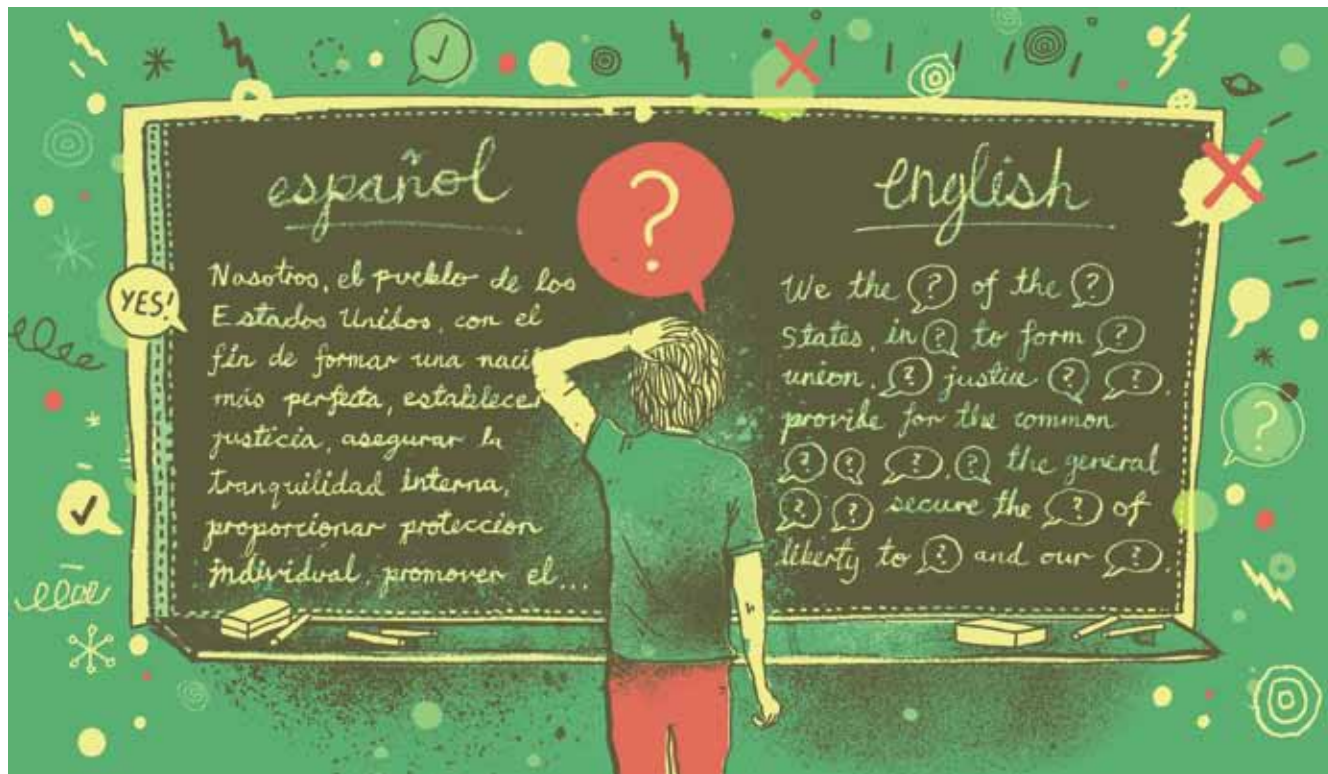 español
YES!
Nasotros, el pueblo de los
Estados Unidos, con el
fin de formar una naci
más perfecta, establecer
justicia, asegurar la
tranquilidad interna,
proporcionar protección
individual, promover el...
?
english
We the ? of the ?
States, in ? to form ?
union, ? justice ? ?,
provide for the common
? ? ?, ? the general
? ? secure the ? of
liberty to ? and our ?.
?